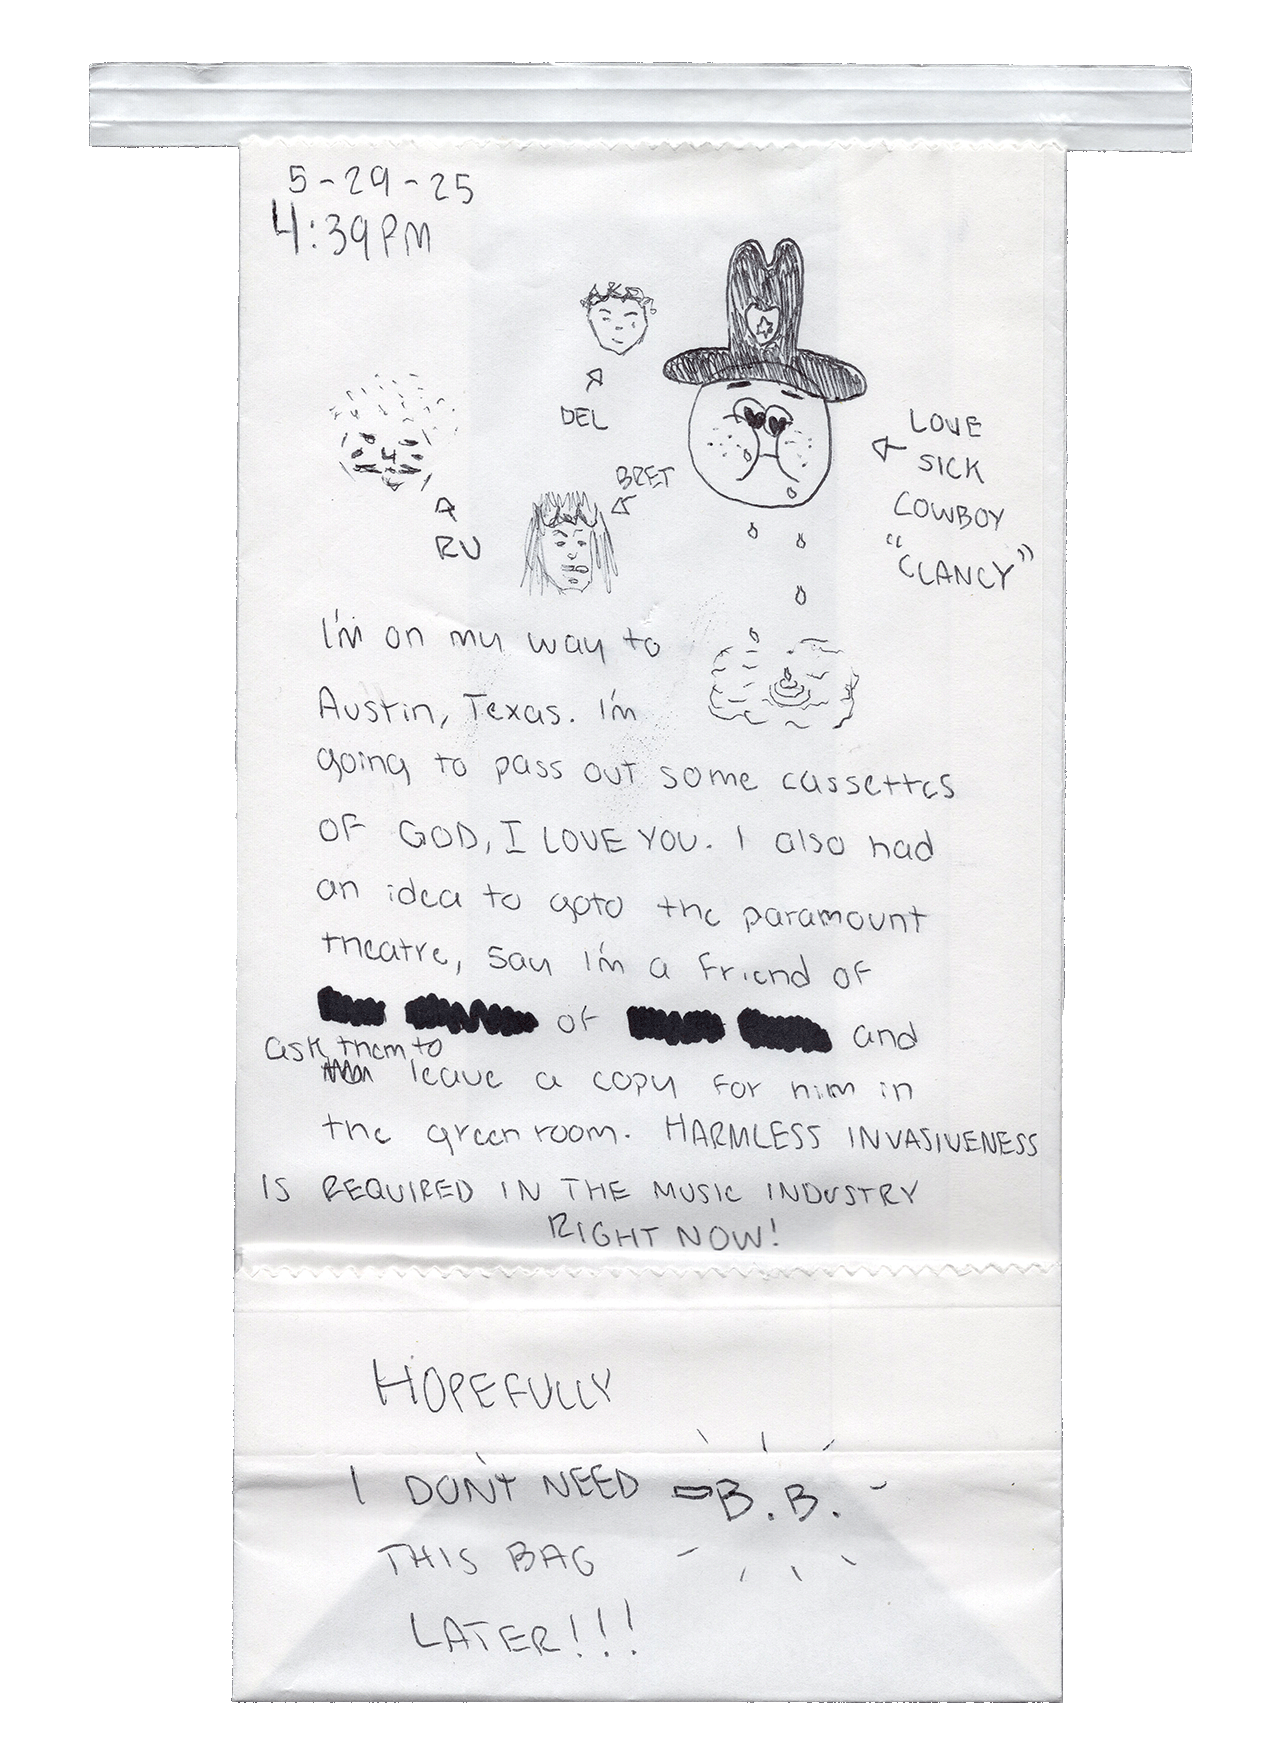 5-29-25
4:39PM
DEL
BRET
RU
LOVE
SICK
COWBOY
"CLANCY"
I'm on my way to
Austin, Texas. I'm
going to pass out some cassettes
OF GOD, I LOVE YOU. I also had
an idea to goto the paramount
theatre, say I'm a friend of
of and
ask them to
leave a copy for him in
the green room. HARMLESS INVASIVENESS
IS REQUIRED IN THE MUSIC INDUSTRY
RIGHT NOW!
HOPEFULLY
I DON'T NEED
THIS BAG
LATER!!!
-B.B.